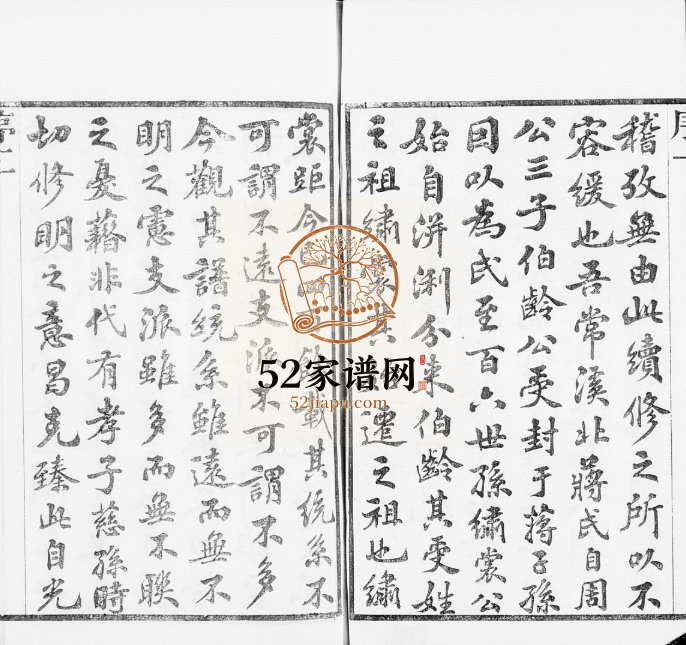 序一
稽攷無由此續修之所以不
容緩也吾常溪非蔣氏自周
公三子伯齡公受封于蔣子孫
因以為氏至百六世孫繡裳公
始自浙分來伯齡其受姓
之祖繡裳其遷之祖也繡
裳距今載其統系不
可謂不遠支派不可謂不多
今觀其譜統系雖遠而無不
明之憲支派雖多而無不睽
之憂藉非代有孝子慈孫時
切修明之意曷克臻此自光
序二
52家谱网
52jiapu.com